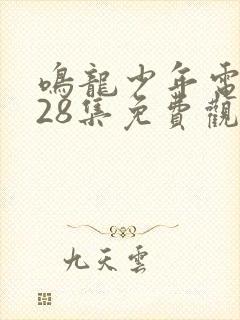 鳴龍少年電
28集免費觀
九天雲